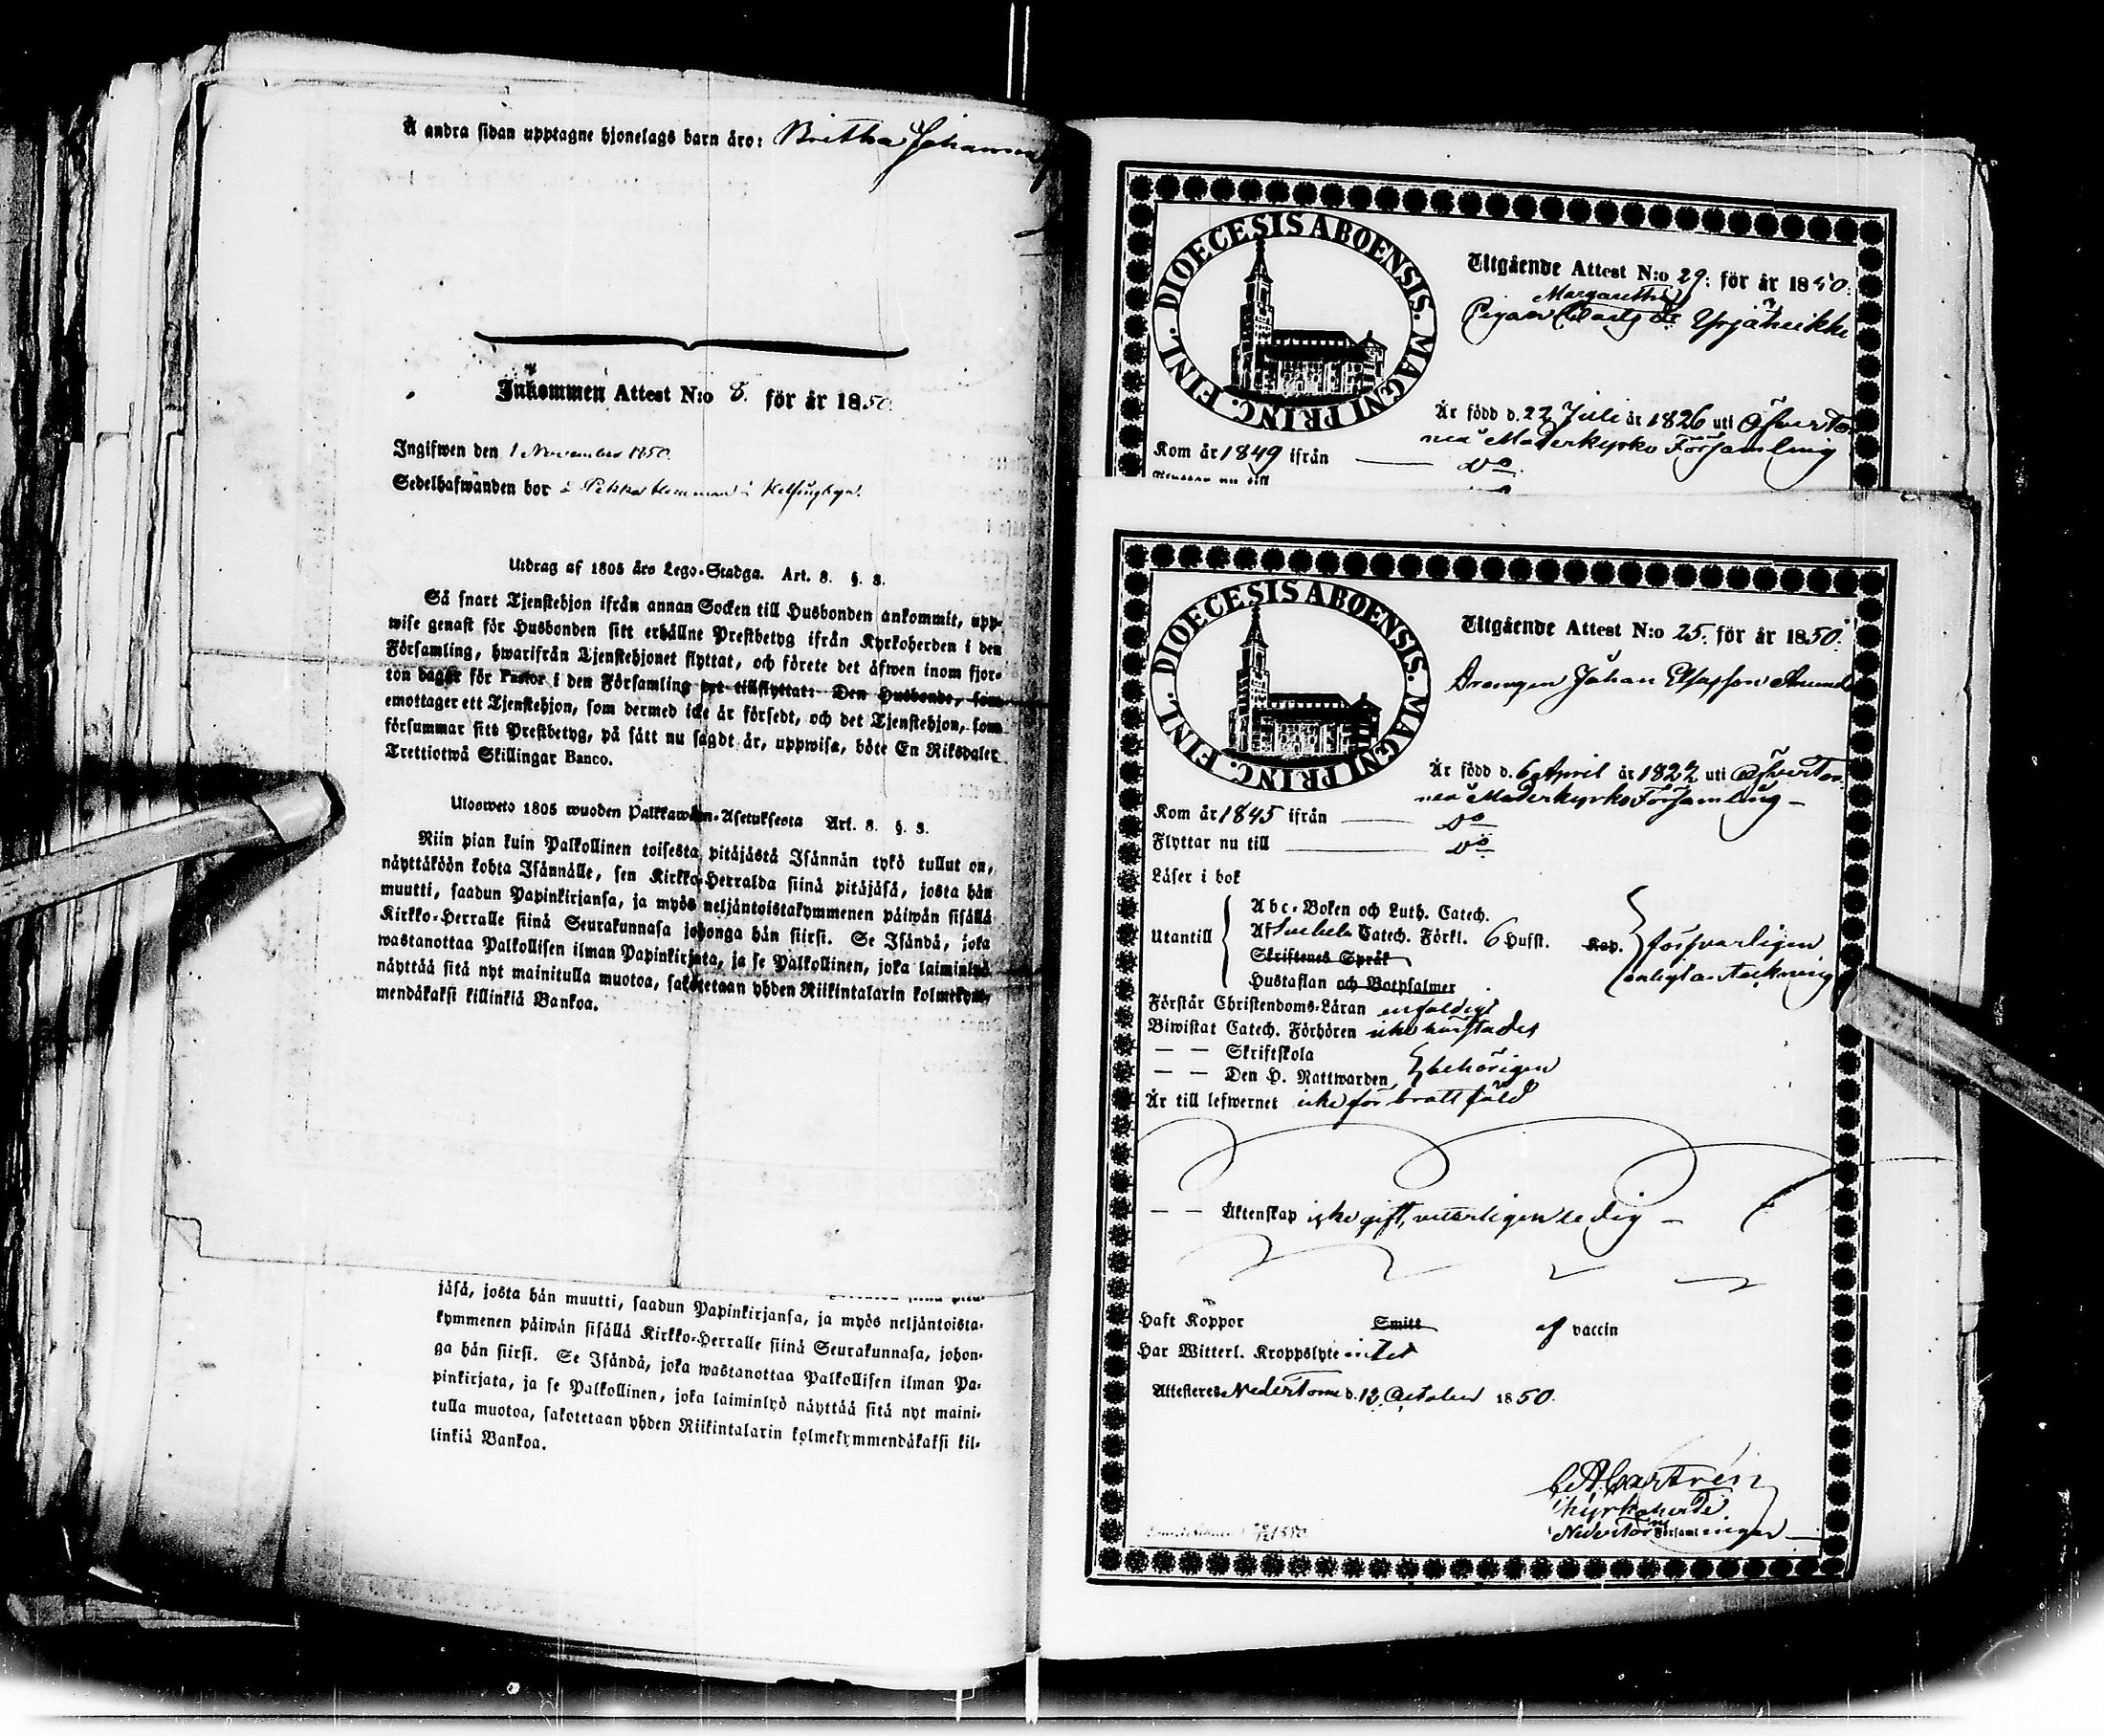 Å andra sidan upptagne hjonelags barn äro: Britha Johanna
Inkommen Attest N:o 8. för år 1850.
Ingifwen den 1 November 1850.
Sedelhafwanden bor å
Utdrag af 1805 års Lego-Stadga. Art. 8. §. 3.
Så snart Tjenstehjon ifrån annan Socken till Husbonden ankommit, upp-
wise genast för Husbonden sitt erhållne Prestbetyg ifrån Kyrkoherden i den
Församling, hwarifrån Tjenstehjonet flyttat, och förete det äfwen inom fjor-
ton dagar för Pastor i den Församling det tillflyttat: Den Husbonde, som
emottager ett Tjenstehjon, som dermed icke är försedt, och det Tjenstehjon, som
försummar sitt Prestbetyg, på sätt nu sagdt är, uppwisa, böte En Riksdaler
Trettiotwå Skillingar Banco.
Ulosweto 1805 wuoden Palkkawäen-Asetuksesta Art. 8. §. 3.
Niin pian kuin Palkollinen toisesta pitäjästä Isännän tykö tullut on,
näyttäköön kohta Isännälle, sen Kirkko-Herralda siinä pitäjäsä, josta hän
muutti, saadun Papinkirjansa, ja myös neljäntoistakymmenen päiwän sisällä
Kirkko-Herralle siinä Seurakunnasa johonga hän siirsi. Se Isändä, joka
wastanottaa Palkollisen ilman Papinkirjata, ja se Palkollinen, joka laiminlyö
näyttää sitä nyt mainitulla muotoa, sakotetaan yhden Riikintalarin kolmekym-
mendäkaksi killinkiä Bankoa.
jäsä, josta hän muutti, saadun Papinkirjansa, ja myös neljäntoista-
kymmenen päiwän sisällä Kirkko-Herralle siinä Seurakunnasa, johon-
ga hän siirsi. Se Isändä, joka wastanottaa Palkollisen ilman Pa-
pinkirjata, ja se Palkollinen, joka laiminlyö näyttää sitä nyt maini-
tulla muotoa, sakotetaan yhden Riikintalarin kolmekymmendäkaksi kil-
linkiä Bankoa.
FINL. DIOECESIS ABOENSIS. MAGNI PRINC.
Utgående Attest N:o 29: för år 1850:
Margaretha
Pigan Yrjäheikki
Är född d. 22 Juli år 1826 uti Öfverto-
neå Moderkyrko Församling
Kom år 1849 ifrån — Do
Flyttar nu till
FINL. DIOECESIS ABOENSIS. MAGNI PRINC.
Utgående Attest N:o 25. för år 1850.
Drengen Johan
Är född d. 6 April år 1822 uti Öfvertor-
neå Moderkyrko Församling —
Kom år 1845 ifrån — Do
Flyttar nu till — Do
Läser i bok
Utantill
Abc-Boken och Luth. Catech.
Af Svebeli Catech. Förkl. 6 Hufst. Kap.
Skriftenes Språk
Hustaflan och Botpsalmer
försvarligen
enligt anteckning
Förstår Christendoms-Läran enfaldigt
Biwistat Catech. Förhören icke
— — Skriftskola
— — Den H. Nattwarden behörigen
Är till lefwernet icke för brott
— — Äktenskap icke gift, veterligen ledig —
Haft Koppor Smitt af vaccin
Har Witterl. Kroppslyte intet
Attesteras NederTorne d. 12 October 1850.
C A Castrén
Kyrkoherde
NederTorne Församlingar